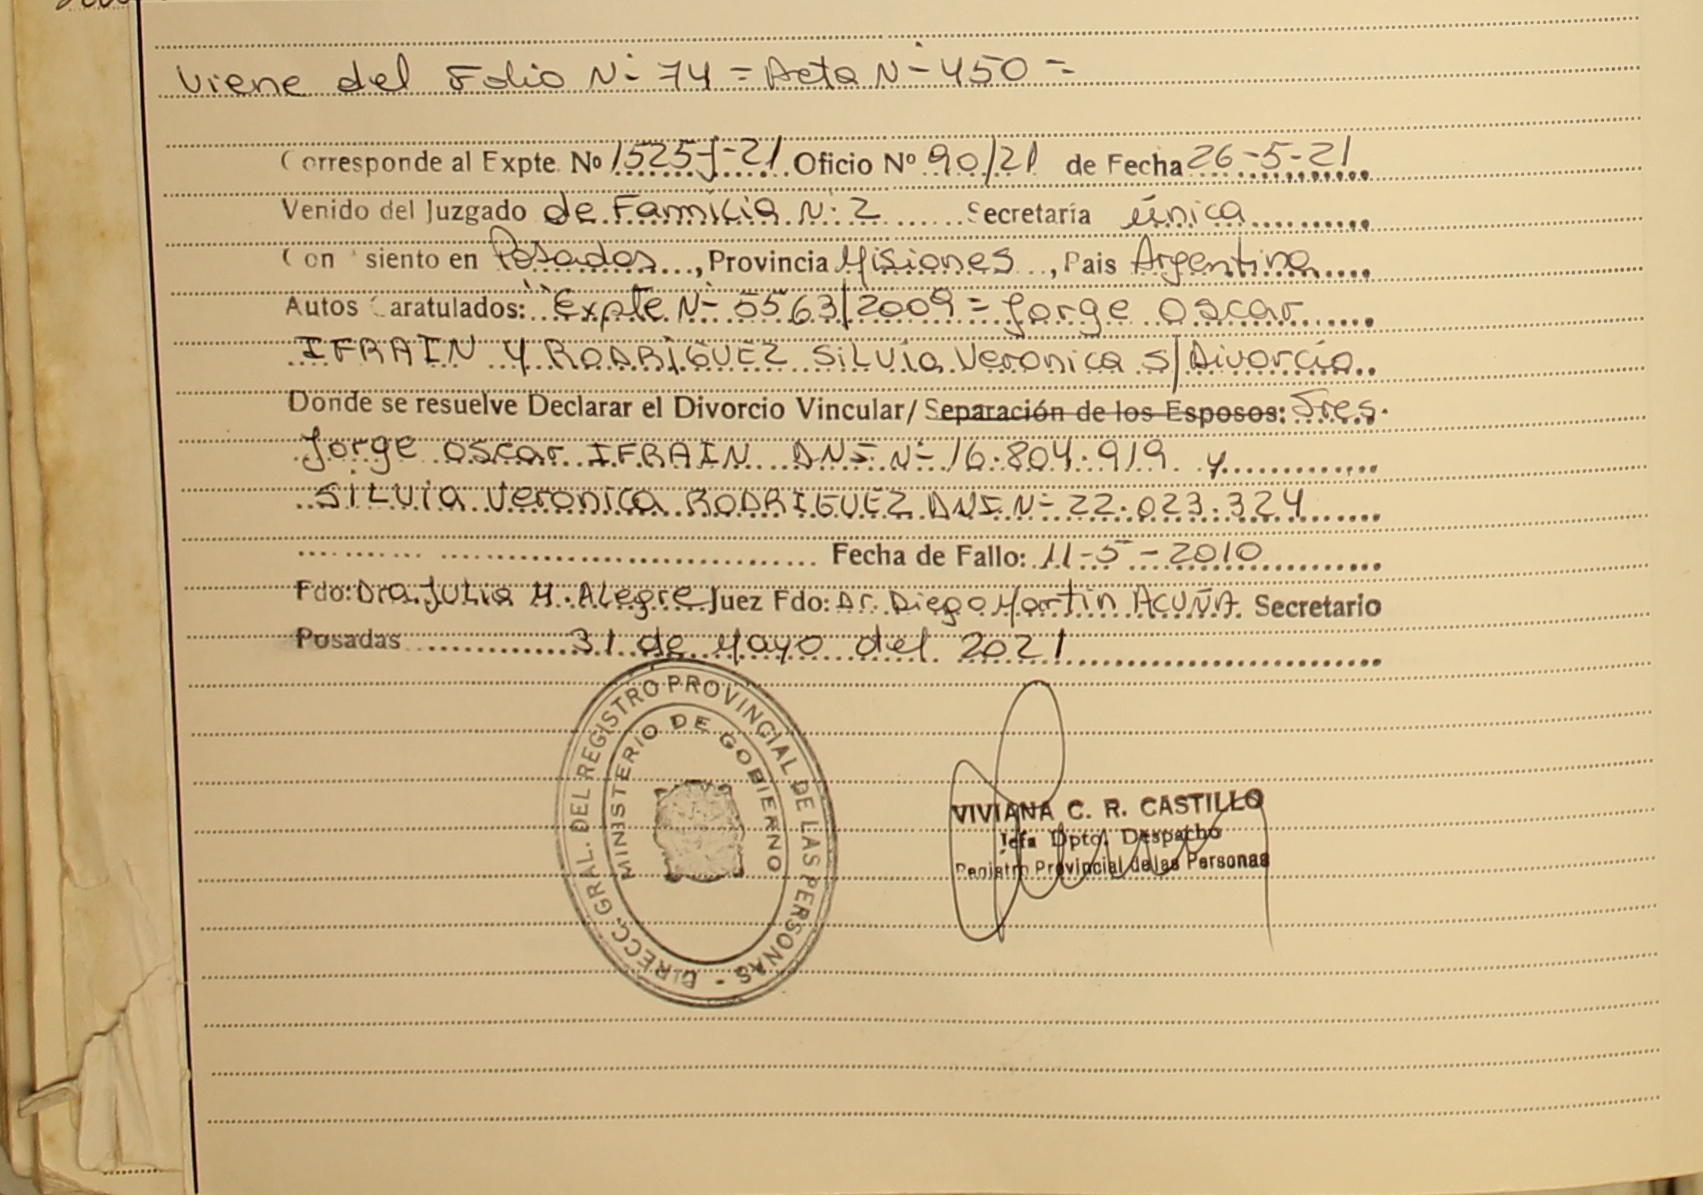 Viene del Folio N- 74 = Acta N- 450 =
Corresponde al Expte. Nº 1525-J-21 Oficio Nº 90/21 de Fecha 26-5-21
Venido del Juzgado de Familia N: 2 Secretaría única
Con siento en Posadas, Provincia Misiones, Pais Argentina
Autos Caratulados: "Expte N- 5563/2009 = Jorge Oscar
IFRAIN Y RODRIGUEZ Silvia Veronica s/ Divorcio
Donde se resuelve Declarar el Divorcio Vincular/ Separación de los Esposos: Sres.
Jorge Oscar IFRAIN DNI N- 16.804.919 y
Silvia Veronica RODRIGUEZ DNI N- 22.023.324
Fecha de Fallo: 11-5-2010
Fdo: Dra. Julia H. Alegre Juez Fdo: Dr. Diego Martin ACUÑA Secretario
Posadas 31 de Mayo del 2021
DIRECC. GRAL. DEL REGISTRO PROVINCIAL DE LAS PERSONAS -
MINISTERIO DE GOBIERNO
VIVIANA C. R. CASTILLO
Jefa Dpto. Despacho
Registro Provincial de las Personas